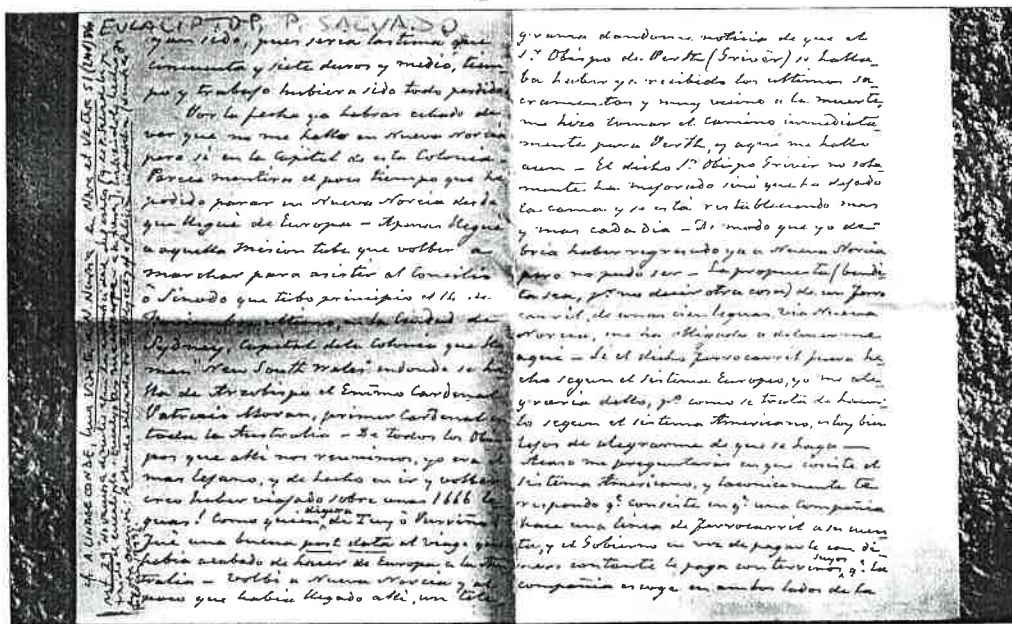 EUCALIPTO P. P. SALVADO
yan sido, pues seria lastima que
cincuenta y siete duros y medio, tiem-
po y trabajo hubiera sido todo perdido.
Por la fecha ya habras echado de
ver que no me hallo en Nueva Norcia
pero si en la Capital de esta Colonia.
Parece mentira el poco tiempo que he
podido parar en Nueva Norcia desde
que llegué de Europa - Apenas llegué
a aquella Mision tube que volber a
marchar para asistir al Concilio
ó Sinodo que tubo principio el 14 de
Noviembre ultimo, en la Ciudad de
Sydney, Capital dela Colonia que lla
man "New South Wales" endonde se ha
lla de Arzobispo el Emimo Cardenal
Patricio Moran, primer Cardenal en
toda la Australia - De todos los Obis
pos que alli nos reunimos, yo era el
mas lejano, y de hecho en ir y volber
creo haber viajado sobre unas 1666 le
guas! Como quien digera, de Tuy ó Porriño
Fué una buena post data al viage que
habia acabado de hacer de Europa a la Aus
tralia - Volbí a Nueva Norcia y al
poco que habia llegado alli, un tele-
grama dandome noticia de que el
Sr. Obispo de Perth (Griver) se halla-
ba haber ya recibido los ultimos sa-
cramentos y muy vecino a la muerte,
me hizo tomar el camino inmediata-
mente para Perth, y aqui me hallo
aun - El dicho Sr. Obispo Griver no sola-
mente ha mejorado sinó que ha dejado
la cama y se está restableciendo mas
y mas cada dia - De modo que yo de-
bria haber regresado ya a Nueva Norcia
pero no pudo ser - La propuesta (bendi-
ta sea, pr. no decir otra cosa) de un Ferro
carril, de unas cien leguas, via Nueva
Norcia, me ha obligado a detenerme
aqui - Si el dicho Ferrocarril fuera he
cho segun el sistema Europeo, yo me ale-
graria dello, po. como se trata de hacer-
lo segun el sistema Americano, estoy bien
lejos de alegrarme de que se haga -
Acaso me preguntarás en que consiste el
sistema Americano, y laconicamente te
respondo qe. consiste en qe. una compañia
hace una linea de Ferrocarril a su cuen
ta, y el Gobierno en vez de pagarle con di-
nero contante le paga con terrenos suyos, qe. la
compañia escoge en ambos lados de la